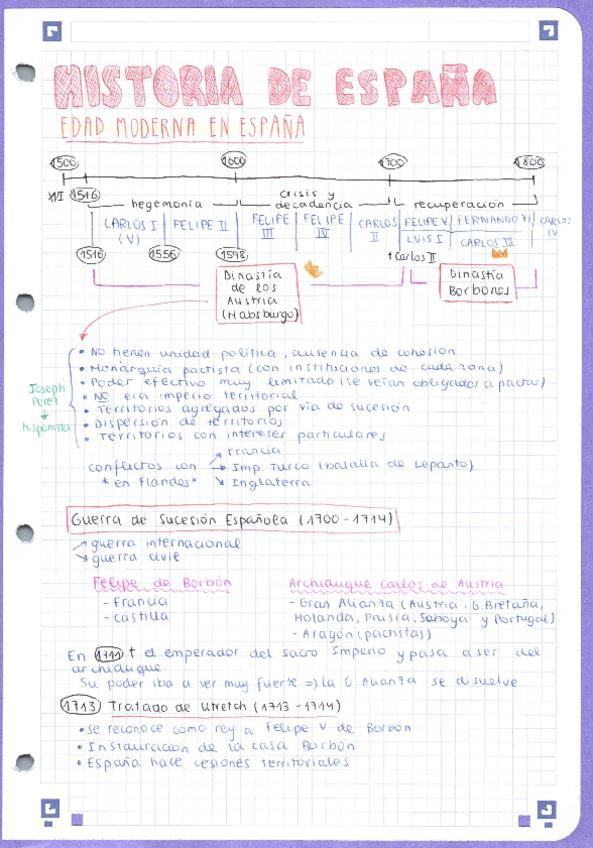 HISTORIA DE ESPAÑA
EDAD MODERNA EN ESPAÑA
1500 1600 1700 1800
XVI 1516 hegemonía crisis y decadencia recuperación
CARLOS I (V) FELIPE II FELIPE III FELIPE IV CARLOS II FELIPE V LUIS I FERNANDO VI CARLOS III CARLOS IV
1516 1556 1598 † Carlos II
Dinastía de los Austria (Habsburgo)
Dinastía Borbones
• No tienen unidad política, ausencia de cohesión
• Monarquía pactista (con instituciones de cada zona)
• Poder efectivo muy limitado (se veían obligados a pactar)
• NO era imperio territorial
• Territorios agregados por vía de sucesión
• Dispersión de territorios
• Territorios con intereses particulares
Joseph Peret
hispanista
conflictos con → Francia
→ Imp. Turco (batalla de Lepanto)
*en Flandes* ↘ Inglaterra
Guerra de Sucesión Española (1700-1714)
→ guerra internacional
↘ guerra civil
Felipe de Borbón
- Francia
- Castilla
Archiduque Carlos de Austria
- Gran Alianza (Austria, G. Bretaña,
Holanda, Prusia, Saboya y Portugal)
- Aragón (pactistas)
En 1711 † el emperador del Sacro Imperio y pasa a ser del
archiduque
Su poder iba a ver muy fuerte => la G. Alianza se disuelve
1713 Tratado de Utretch (1713-1714)
• Se reconoce como rey a Felipe V de Borbón
• Instauración de la casa Borbón
• España hace cesiones territoriales